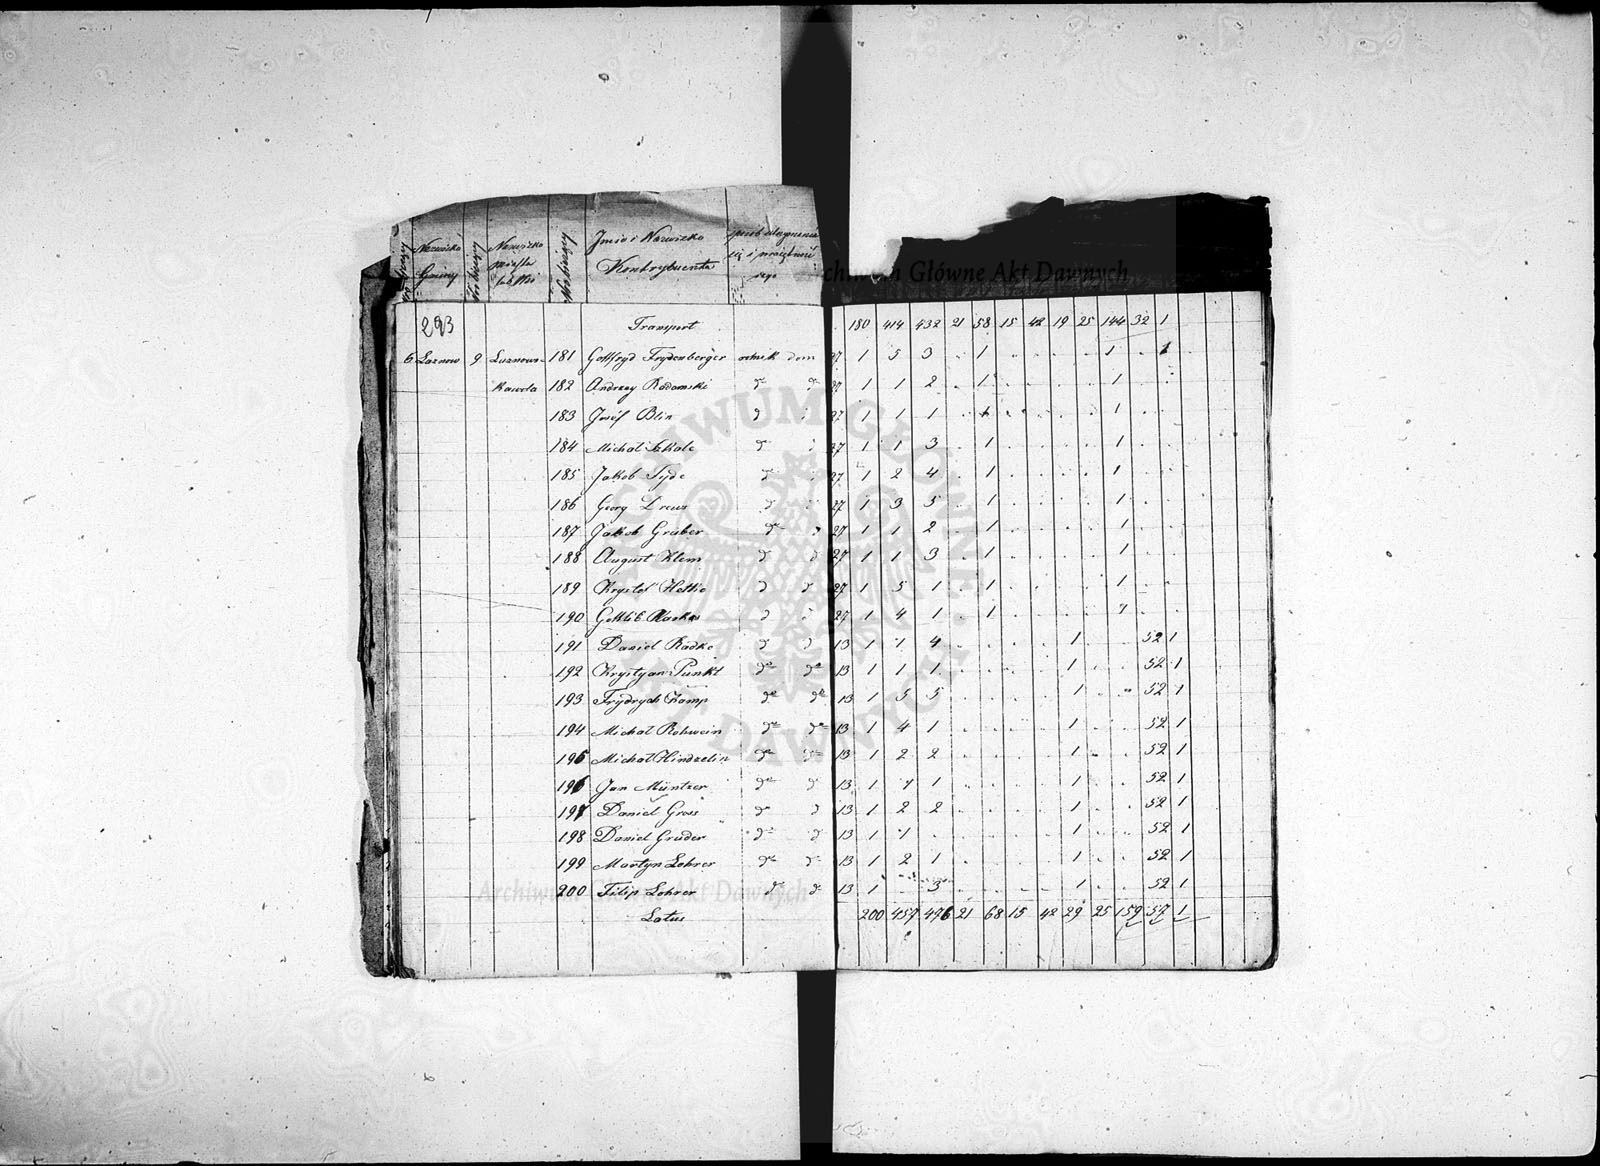 Nazwisko Gminy
Jmie i Nazwisko Kontrybuenta
283 Transport 180 414 432 21 58 15 42 19 25 144 32 1
6 Łaznow 9 181 Gottfryd Frydenberger rolnik dom 27 1 5 3 . 1 1
182 Andrzey Radomski do d 27 1 1 2 . 1 1
183 Josef Blin d 27 1 1 1 1 1
184 Michał do 27 1 1 3 . 1 1
185 Jakob d 27 1 2 4 . 1 1
186 Georg Dreus d 27 1 3 5 1 1
187 Jakob Gruber do 27 1 1 2 1 1
188 August Klem d d 27 1 1 3 1 1
189 Krystof Hetke d d 27 1 5 1 1 1
190 Gottlib d 27 1 4 1 1 1
191 Daniel Radke d d 13 1 1 4 1 52 1
192 Krystyan Punkt do do 13 1 1 1 1 52 1
193 Frydrych Kamp do do 13 1 5 5 1 52 1
194 Michał Rohwein do do 13 1 4 1 1 52 1
195 Michał Hindzelin do do 13 1 2 2 1 52 1
196 Jan Müntzer do d 13 1 1 1 1 52 1
197 Daniel Gross do d 13 1 2 2 1 52 1
198 Daniel Gruder do d 13 1 1 . 1 52 1
199 Martyn Lohrer do d 13 1 2 1 1 52 1
200 Filip Lohrer do d 13 1 3 1 52 1
Latus 200 457 476 21 68 15 42 29 25 159 57 1
Archiwum Główne Akt Dawnych
Archiwum Główne Akt Dawnych
ARCHIWUM GŁÓWNE AKT DAWNYCH